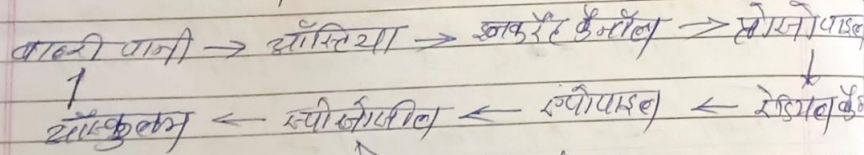 बाहरी पानी → ऑस्टिया → इनकरेंट कैनॉल → प्रोसोपाइल
↓
↑
ऑस्कुलम ← स्पोंजोसील ← एपोपाइल ← रेडियल कै